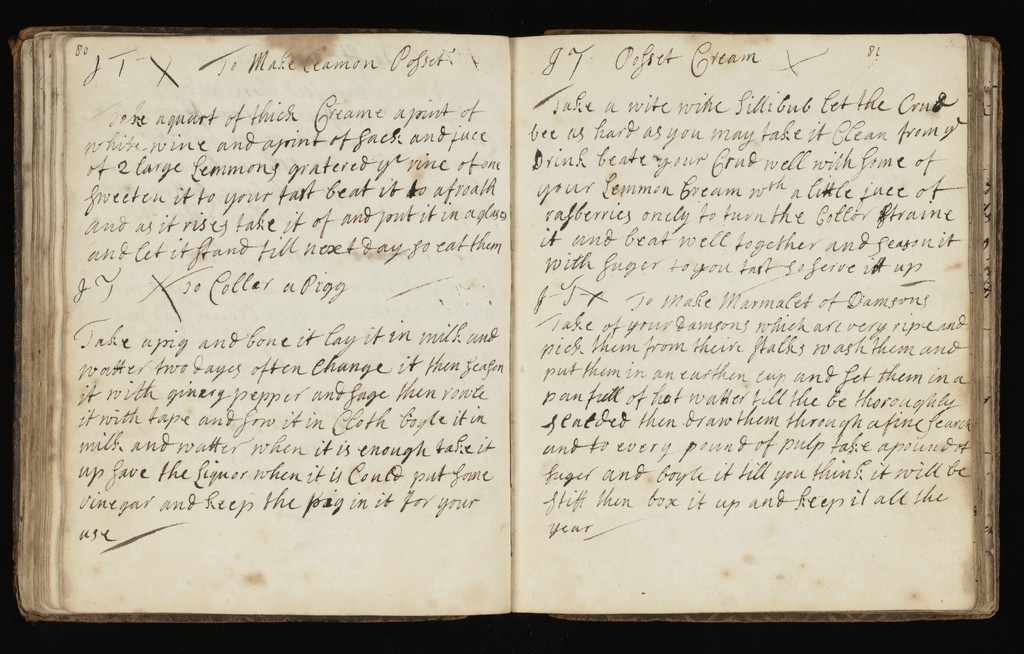 80
J T X To Make Leamon Posset
Take a quart of thick Creame a pint of
white wine and a pint of sack and juce
of 2 large Lemmons gratered yr rine of one
sweeten it to your tast beat it to a froath
and as it rises take it of and put it in a glass
and let it stand till next day so eat them
J T X To Coller a Pigg
Take a pig and bone it lay it in milk and
watter two dayes often Change it then season
it with ginerg pepper and sage then rowle
it with tape and sow it in Cloth boyle it in
milk and watter when it is enough take it
up save the liquor when it is Could put some
vinegar and keep the pig in it for your
use
81
J T Posset Cream X
Take a wite wine sillibub let the Crud
bee as hard as you may take it Clean from yr
Drink beate your Crud well with some of
your Lemmon Cream wth a little juce of
rasberries onely to turn the Collor straine
it and beat well together and season it
with suger to you tast so serve it up
J T X To Make Marmalet of Damsons
Take of your damsons which are very ripe and
pick them from theire stalks wash them and
put them in an earthen cup and set them in a
pan full of hot watter till the be thoroughly
scalded then draw them through a fine search
and to every pound of pulp take a pound of
suger and boyle it till you think it will be
stiff then box it up and keep it all the
year